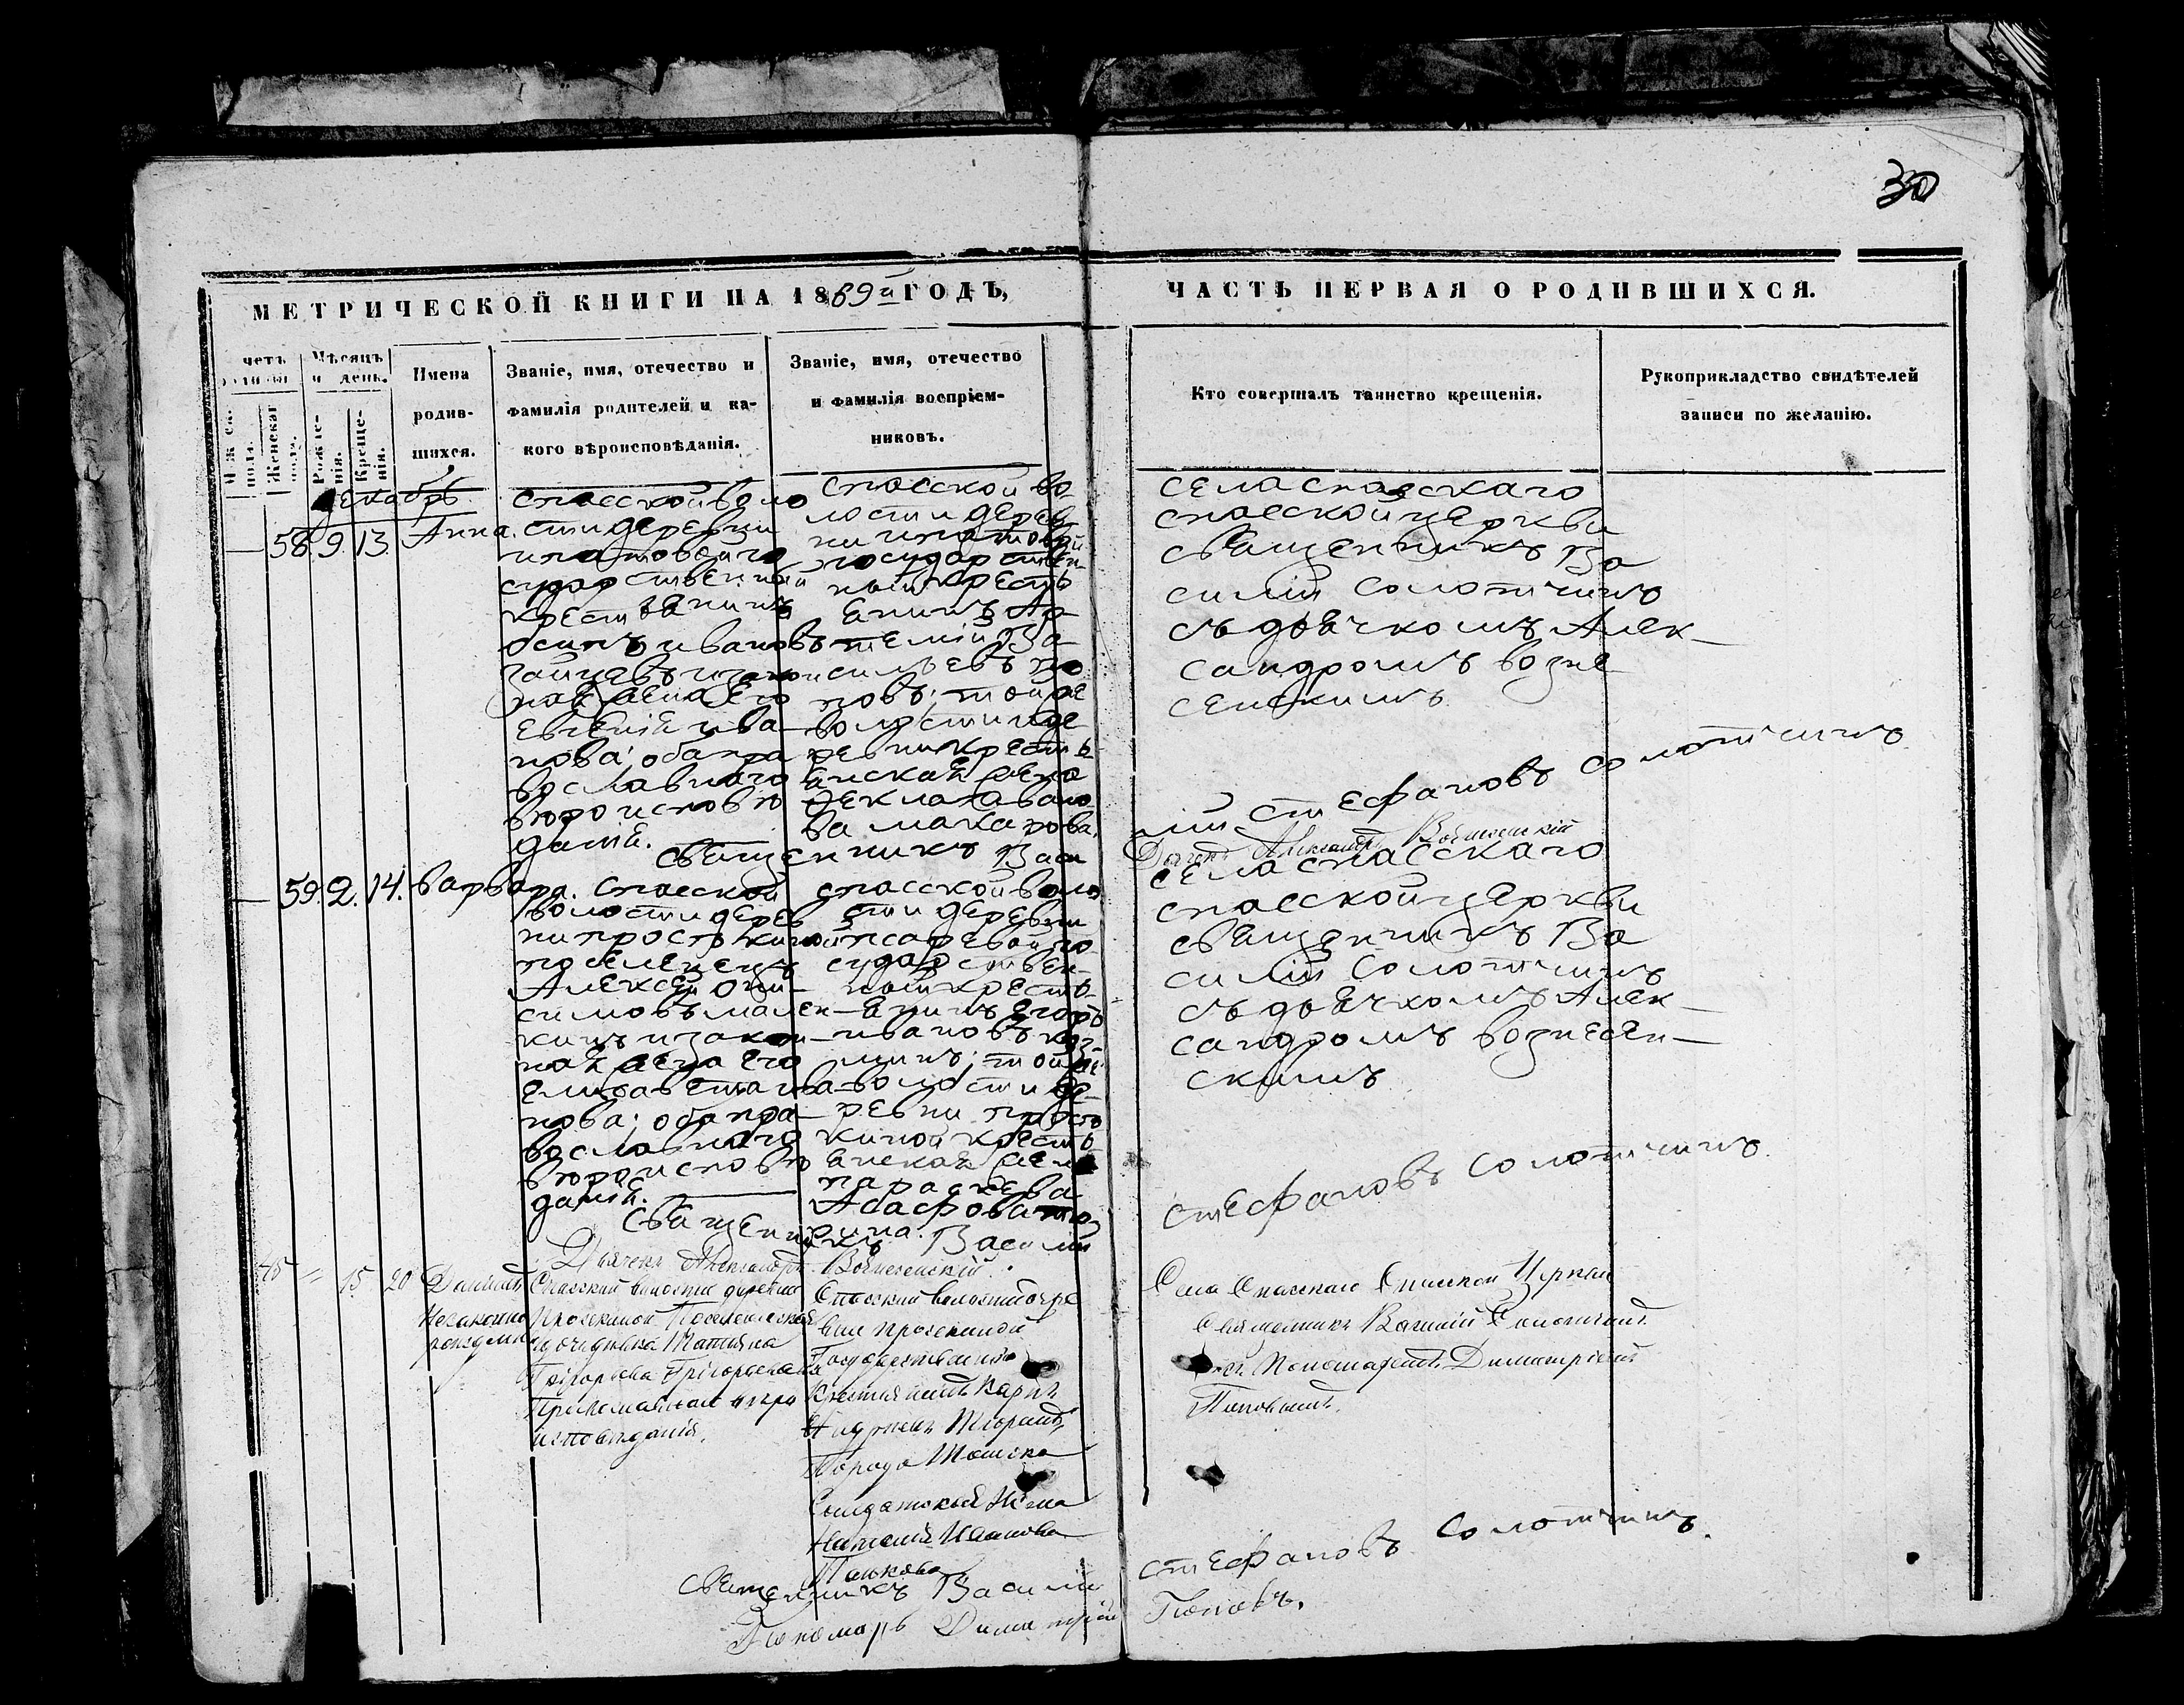 30
МЕТРИЧЕСКОЙ КНИГИ НА 1869й ГОДЪ,
ЧАСТЬ ПЕРВАЯ О РОДИВШИХСЯ.
Мѣсяцъ и день.
Женскаго пола.
Рожде-
нія.
Креще-
нія.
Имена
родив-
шихся.
Званіе, имя, отечество и
фамилія родителей и ка-
кого вѣроисповѣданія.
Званіе, имя, отечество
и фамилія воспріем-
никовъ.
Кто совершалъ таинство крещенія.
Рукоприкладство свидѣтелей
записи по желанію.
Декабрь
58. 9. 13. Анна.
спасской воло
сти деревни
сударственный
крестьянинъ
осипъ ивановъ
зайцевъ и закон
ная жена его
евгенія ива-
нова; оба пра
вославнаго
вѣроисповѣ
данія.
спасской во-
лости дерев
ни
государствен
ный кресть
янинъ Ар-
темій Ва-
сильевъ по
повъ; той же
волости и де
ревни кресть-
янская жена
Ѳекла
ва макарова.
села спасскаго
спасской церкви
священникъ Ва
силій солотчинъ
съ дьячкомъ Алек-
сандромъ возне
сенскимъ
священникъ Васи
лій стефановъ солотчинъ
Дьячекъ Александръ Вознесенскій
59. 9. 14. Варвара.
спасской
волости дерев
ни проскокиной
поселенецъ
Алексей они-
симовъ мален-
кинъ и закон-
ная жена его
елисавета ива-
нова; оба пра-
вославнаго
вѣроисповѣ
данія.
спасской воло
сти деревни
псаревой го-
сударствен-
ный кресть-
янинъ егоръ
ивановъ
той же
волости де-
ревни
киной кресть-
янская жена
параскева
села спасскаго
спасской церкви
священникъ Ва
силій солотчинъ
съ дьячкомъ Алек-
сандромъ вознесен-
скимъ
священникъ Василій
стефановъ солотчинъ.
Дьячекъ Александръ Вознесенскій.
45 " 15 20 Даніилъ
Незаконно
рожденный
Спасской волости деревни
Поселенческая
дочь дѣвка Татьяна
Григорьева
Православнаго вѣро
исповѣданія.
Спасской волости дере
вни
Государственный
Крестьянинъ Карпъ
Города Томска
Солдатская Жена
Наталія Иванова
Панкова
Села Спасскаго Спасской Церкви
Священникъ Василій Солотчинъ
съ Пономаремъ Димитріемъ
Поповымъ.
священникъ Василій
стефановъ солотчинъ.
Пономарь Димитрій
Поповъ.